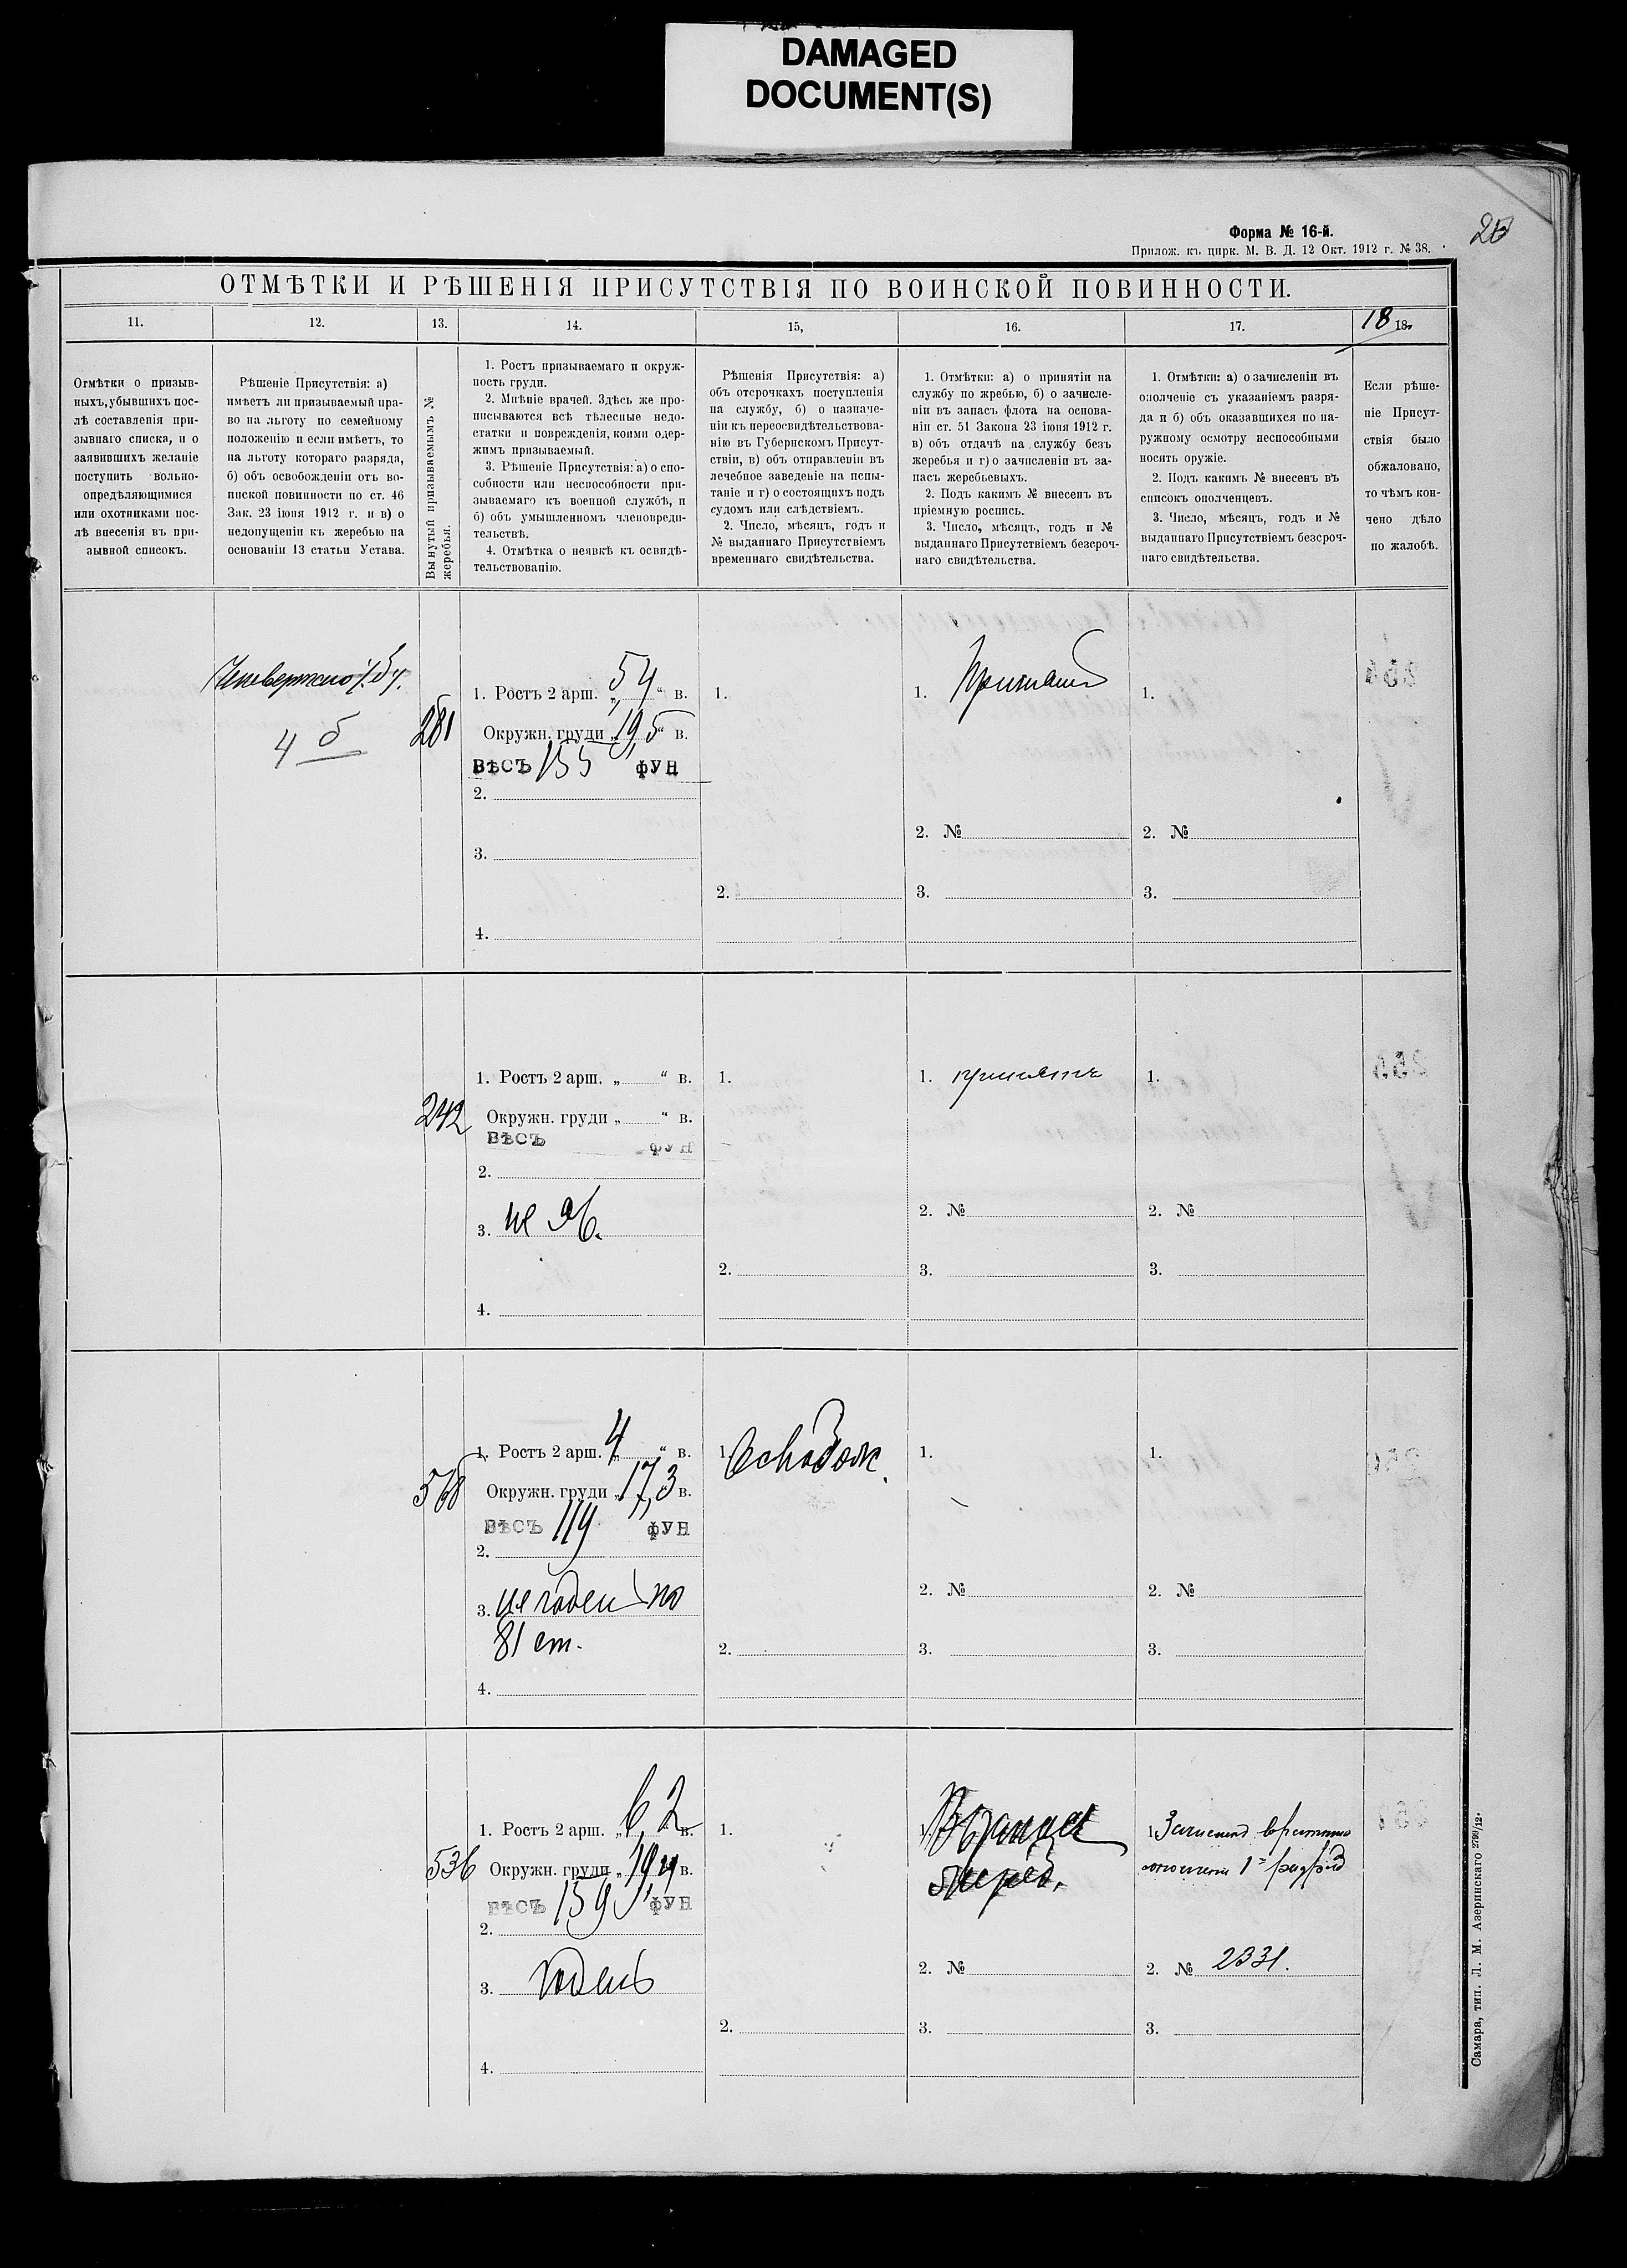 DAMAGED
DOCUMENT(S)
Форма № 16-й.
Прилож. къ цирк. М. В. Д. 12 Окт. 1912 г. № 38.
ОТМѢТКИ И РѢШЕНІЯ ПРИСУТСТВІЯ ПО ВОИНСКОЙ ПОВИННОСТИ.
11.
12.
13.
14.
15,
16.
17.
18 18.
Отмѣтки о призыв-
ныхъ, убывшихъ пос-
лѣ составленія при-
зывнаго списка, и о
заявившихъ желаніе
поступить вольно-
опредѣляющимися
или охотниками пос-
лѣ внесенія въ при-
зывной списокъ.
Рѣшеніе Присутствія: а)
имѣетъ ли призываемый пра-
во на льготу по семейному
положенію и если имѣетъ, то
на льготу котораго разряда,
б) объ освобожденіи отъ во-
инской повинности по ст. 46
Зак. 23 іюня 1912 г. и в) о
недопущеніи къ жеребью на
основаніи 13 статьи Устава.
Вынутый призываемымъ №
жеребья.
1. Ростъ призываемаго и окруж-
ность груди.
2. Мнѣніе врачей. Здѣсь же про-
писываются всѣ тѣлесные недо-
статки и поврежденія, коими одер-
жимъ призываемый.
3. Рѣшеніе Присутствія: а) о спо-
собности или неспособности при-
зываемаго къ военной службѣ, и
б) объ умышленномъ членовреди-
тельствѣ.
4. Отмѣтка о неявкѣ къ освидѣ-
тельствованію.
Рѣшенія Присутствія: а)
объ отсрочкахъ поступленія
на службу, б) о назначе-
ніи къ переосвидѣтельствова-
нію въ Губернскомъ Присут-
ствіи, в) объ отправленіи въ
лечебное заведеніе на испы-
таніе и г) о состоящихъ подъ
судомъ или слѣдствіемъ.
2. Число, мѣсяцъ, годъ и
№ выданнаго Присутствіемъ
временнаго свидѣтельства.
1. Отмѣтки: а) о принятіи на
службу по жребью, б) о зачисле-
ніи въ запасъ флота на основа-
ніи ст. 51 Закона 23 іюня 1912 г.
в) объ отдачѣ на службу безъ
жеребья и г) о зачисленіи въ за-
пасъ жеребьевыхъ.
2. Подъ какимъ № внесенъ въ
пріемную роспись.
3. Число, мѣсяцъ, годъ и №
выданнаго Присутствіемъ безсроч-
наго свидѣтельства.
1. Отмѣтки: а) о зачисленіи въ
ополченіе съ указаніемъ разря-
да и б) объ оказавшихся по на-
ружному осмотру неспособными
носить оружіе.
2. Подъ какимъ № внесенъ въ
списокъ ополченцевъ.
3. Число, мѣсяцъ, годъ и №
выданнаго Присутствіемъ безсроч-
наго свидѣтельства.
Если рѣше-
ніе Присут-
ствія было
обжаловано,
то чѣмъ кон-
чено дѣло
по жалобѣ.
4 б
281
1. Ростъ 2 арш. „ 5,4 “ в.
Окружн. груди „ 19,5 “ в.
ВѢСЪ 155 ФУН
2.
3.
4.
1.
2.
1. Принятъ
2. №
3.
1.
2. №
3.
242
1. Ростъ 2 арш. „ “ в.
Окружн. груди „ “ в.
ВѢСЪ ФУН
2.
3. не яв.
4.
1.
2.
1. принятъ
2. №
3.
1.
2. №
3.
568
1. Ростъ 2 арш. „ 4 “ в.
Окружн. груди „ 17,3 в.
ВѢСЪ 119 ФУН
2.
3. не годен по
81 ст.
4.
1. Освобож.
2.
1.
2. №
3.
1.
2. №
3.
536
1. Ростъ 2 арш. „ 6,2 в.
Окружн. груди „ 19,4 в.
ВѢСЪ 159 ФУН
2.
3. годенъ
4.
1.
2.
1.
2. №
3.
1. Зачисленъ
ополченія 1 разряд
2. № 2331.
3.
Самара, тип. Л. М. Азеринскаго 2799/12.